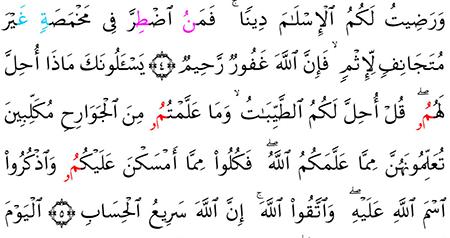 وَرَضِيتُ لَكُمُ ٱلْإِسْلَـٰمَ دِينًا ۚ فَمَنُ ٱضْطِرَّ فِى مَخْمَصَةٍ غَيْرَ
مُتَجَانِفٍ لِّإِثْمٍ ۙ فَإِنَّ ٱللَّهَ غَفُورٌ رَّحِيمٌ ﴿٤﴾ يَسْـَٔلُونَكَ مَاذَا أُحِلَّ
لَهُمُۥ ۖ قُلْ أُحِلَّ لَكُمُ ٱلطَّيِّبَـٰتُ ۙ وَمَا عَلَّمْتُمُۥ مِنَ ٱلْجَوَارِحِ مُكَلِّبِينَ
تُعَلِّمُونَهُنَّ مِمَّا عَلَّمَكُمُ ٱللَّهُ ۖ فَكُلُوا۟ مِمَّا أَمْسَكْنَ عَلَيْكُمُۥ وَٱذْكُرُوا۟
ٱسْمَ ٱللَّهِ عَلَيْهِ ۖ وَٱتَّقُوا۟ ٱللَّهَ ۚ إِنَّ ٱللَّهَ سَرِيعُ ٱلْحِسَابِ ﴿٥﴾ ٱلْيَوْمَ